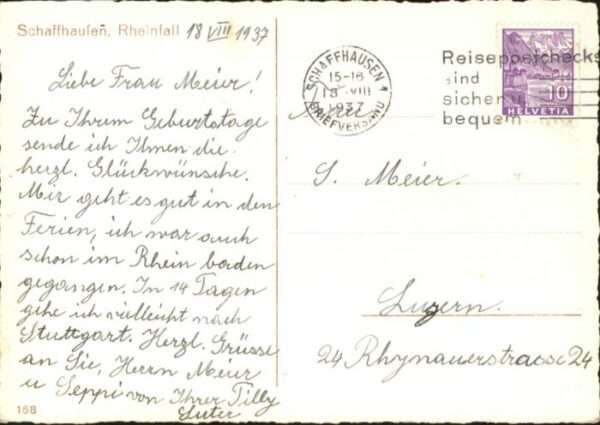 Schaffhausen, Rheinfall 18 VIII 1937
Liebe Frau Meier!
Zu Ihrem Geburtstage
sende ich Ihnen die
herzl. Glückwünsche.
Mir geht es gut in den
Ferien, ich war auch
schon im Rhein baden
gegangen. In 14 Tagen
gehe ich vielleicht nach
Stuttgart. Herzl. Grüsse
an Sie, Herrn Meier
u Seppi von Ihrer Tilly
Suter
168
SCHAFFHAUSEN 1
15-16
18 VIII
1937
BRIEFVERSAND
Reisepostchecks
sind
sicher
bequem
10
HELVETIA
S. Meier.
Luzern.
24 Rhynauerstrasse 24